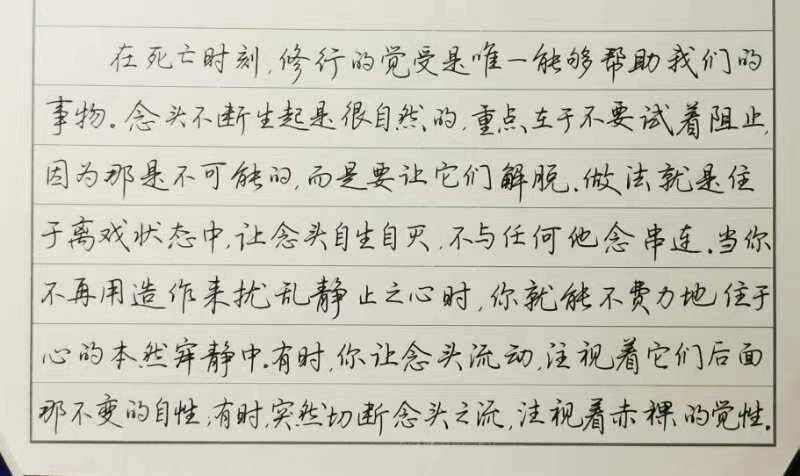 在死亡时刻,修行的觉受是唯一能够帮助我们的
事物。念头不断生起是很自然的,重点在于不要试着阻止,
因为那是不可能的,而是要让它们解脱。做法就是住
于离戏状态中,让念头自生自灭,不与任何他念串连。当你
不再用造作来扰乱静止之心时,你就能不费力地住于
心的本然寂静中。有时,你让念头流动,注视着它们后面
那不变的自性;有时,突然切断念头之流,注视着赤裸的觉性。